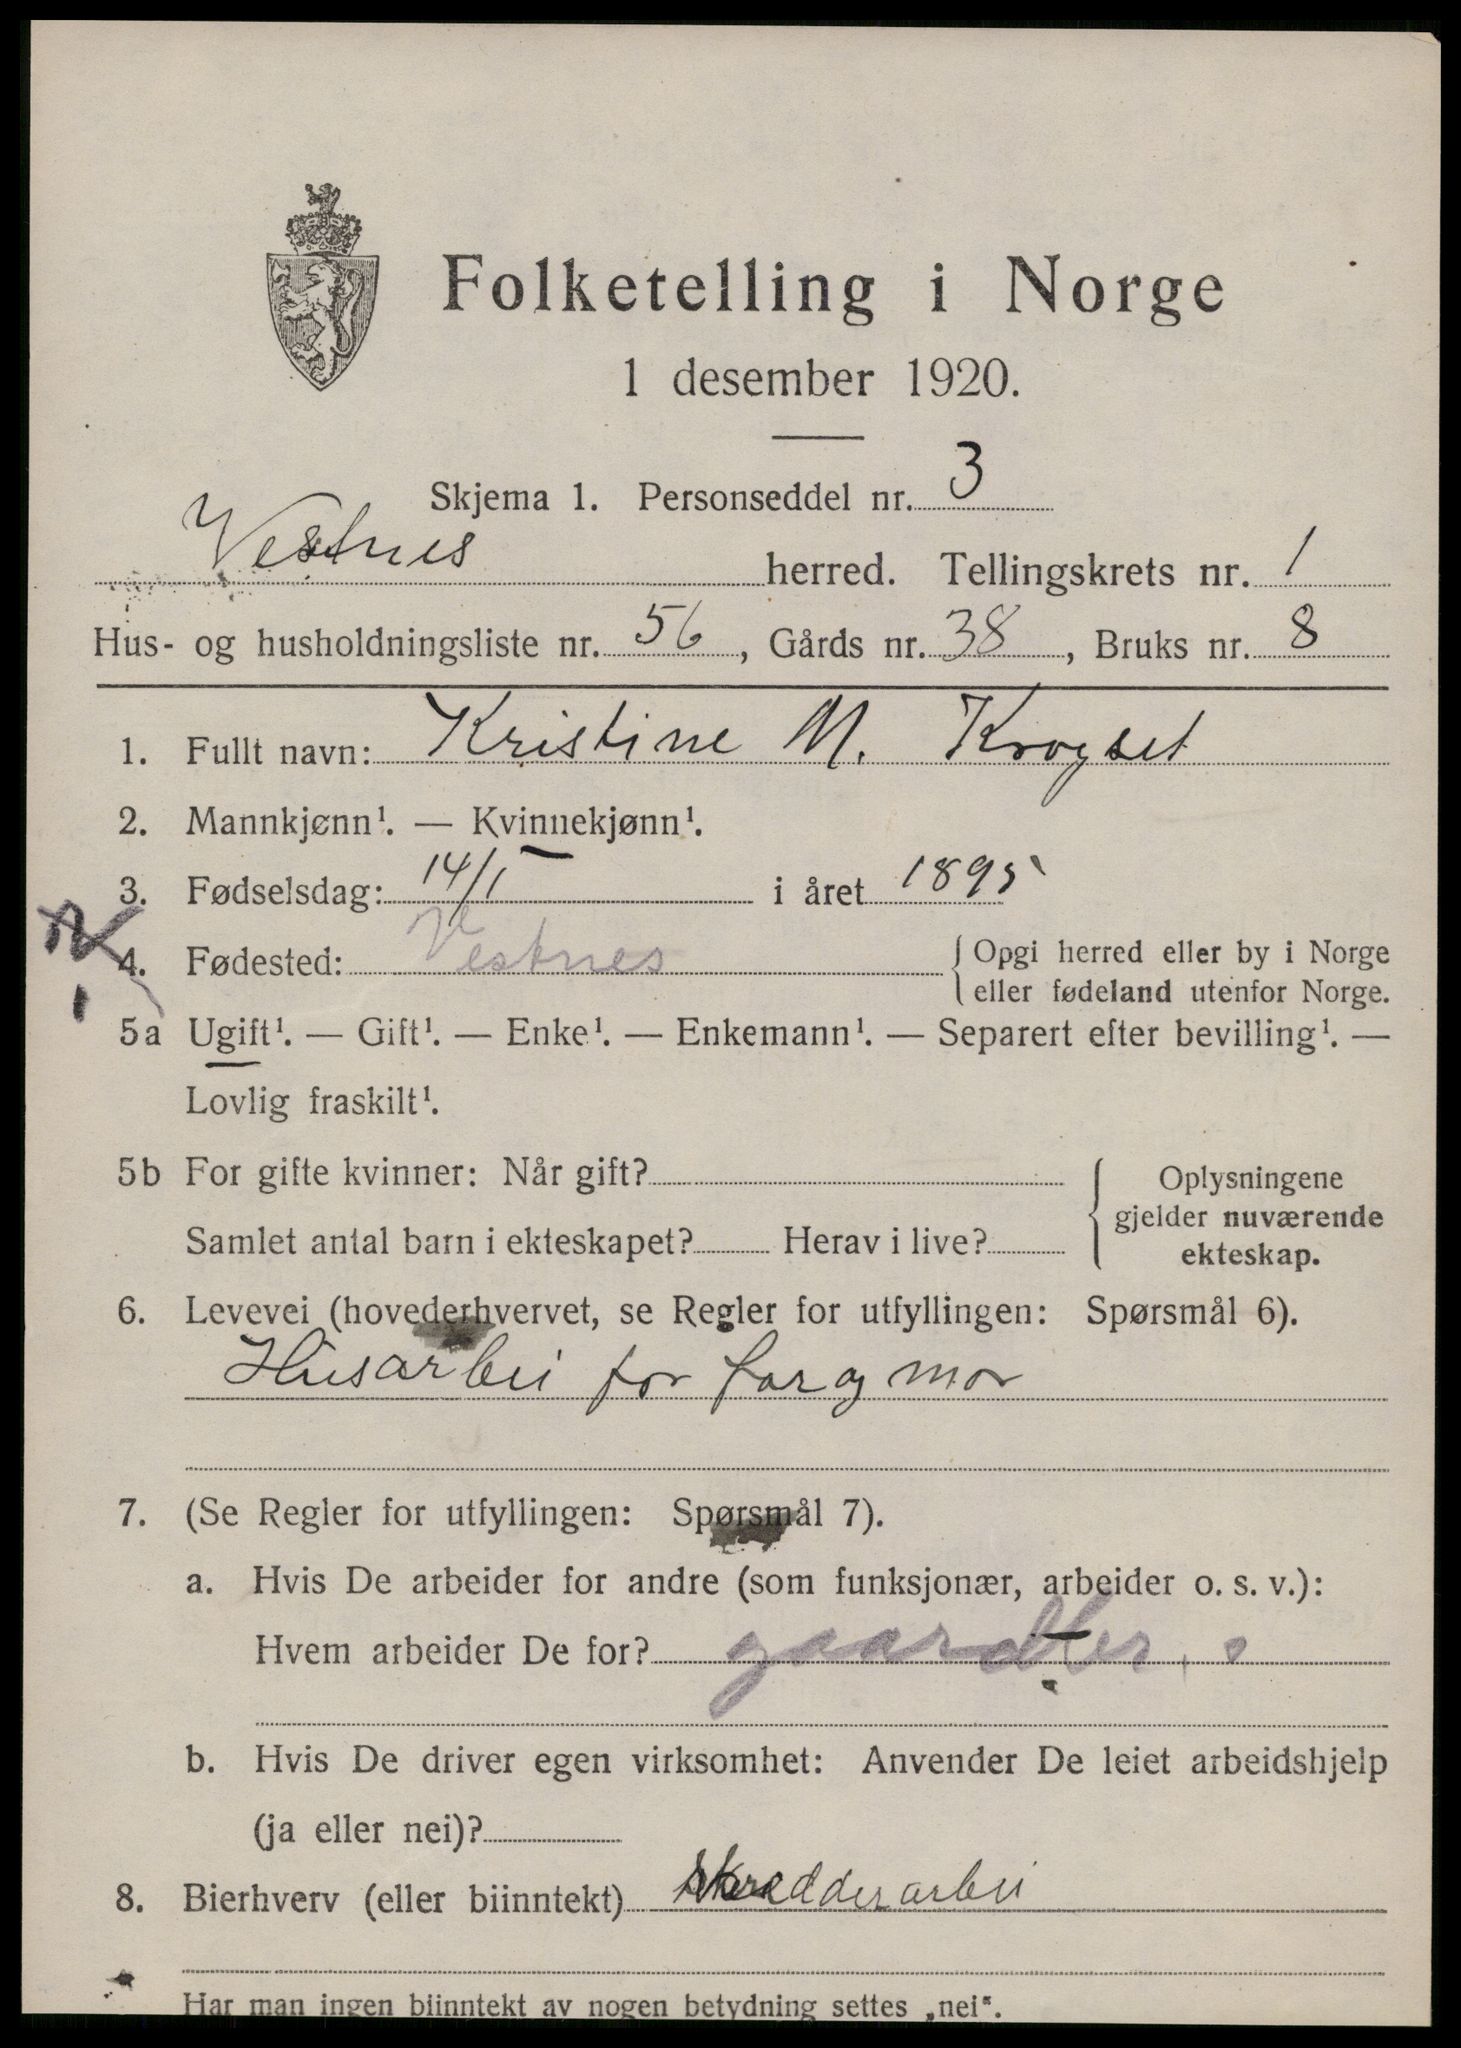 Folketelling i Norge
1 desember 1920.
Skjema 1. Personseddel nr. 3
Vestnes herred. Tellingskrets nr. 1
Hus- og husholdningsliste nr. 56, Gårds nr. 38, Bruks nr. 8
1. Fullt navn: Kristine M. Krogset
2. Mannkjønn¹. — Kvinnekjønn¹.
3. Fødselsdag: 14/1 i året 1895
4. Fødested: Vestnes { Opgi herred eller by i Norge
eller fødeland utenfor Norge.
5a Ugift¹. — Gift¹. — Enke¹. — Enkemann¹. — Separert efter bevilling¹. —
Lovlig fraskilt¹.
5b For gifte kvinner: Når gift? { Oplysningene
gjelder nuværende
Samlet antal barn i ekteskapet? Herav i live?
ekteskap.
6. Levevei (hovederhvervet, se Regler for utfyllingen: Spørsmål 6).
Husarbei for far og mor
7. (Se Regler for utfyllingen: Spørsmål 7).
a. Hvis De arbeider for andre (som funksjonær, arbeider o. s. v.):
Hvem arbeider De for?
b. Hvis De driver egen virksomhet: Anvender De leiet arbeidshjelp
(ja eller nei)?
8. Bierhverv (eller biinntekt) skredderarbei
Har man ingen biinntekt av nogen betydning settes „nei“.